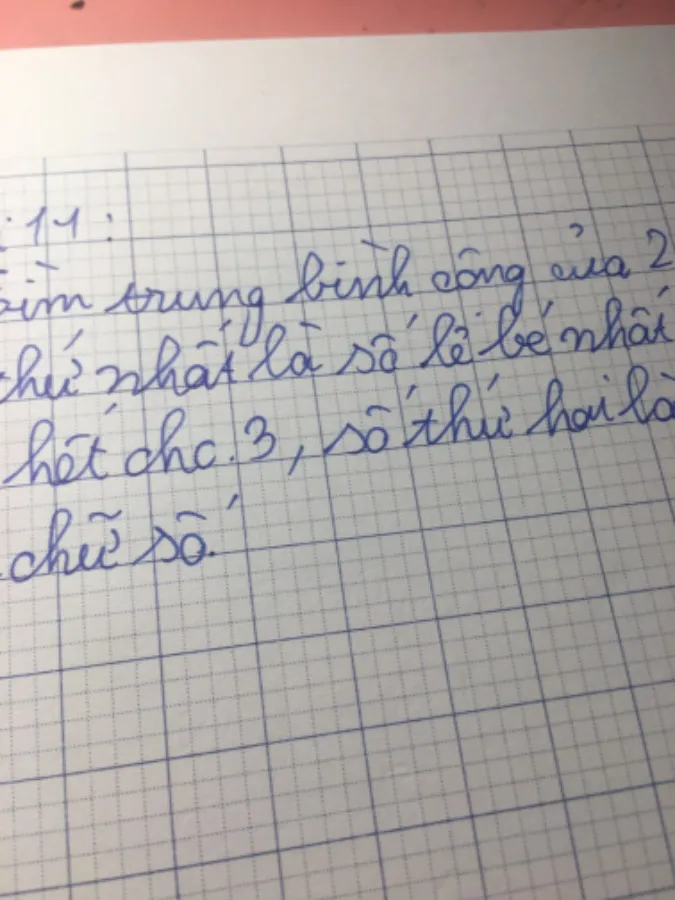 : 11:
tìm trung bình cộng của 2
thứ nhất là số lẻ bé nhất
hết cho 3, số thứ hai là
chữ số.